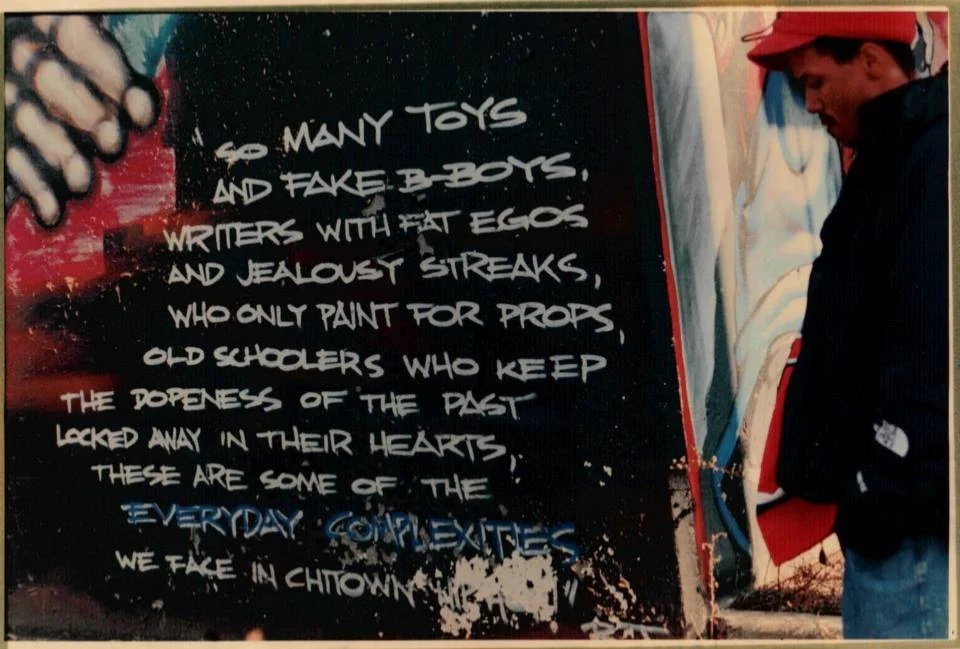 "SO MANY TOYS
AND FAKE B-BOYS,
WRITERS WITH FAT EGOS
AND JEALOUSY STREAKS,
WHO ONLY PAINT FOR PROPS,
OLD SCHOOLERS WHO KEEP
THE DOPENESS OF THE PAST
LOCKED AWAY IN THEIR HEARTS,
THESE ARE SOME OF THE
EVERYDAY COMPLEXITIES
WE FACE IN CHITOWN